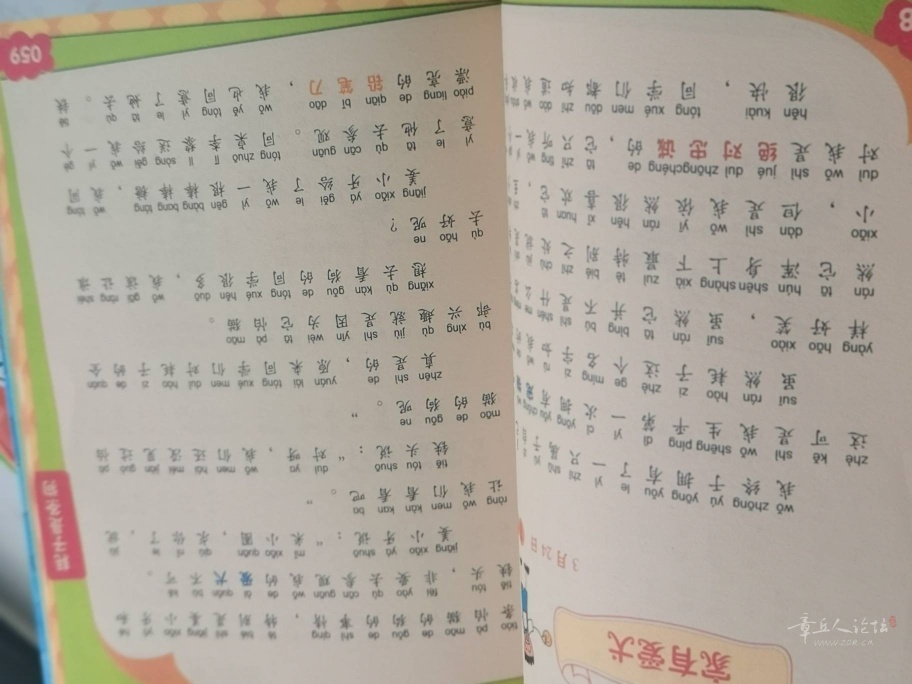 家有爱犬
3月24日
wǒ zhōng yú yōng yǒu le yì zhī
我终于拥有了一只属于
zhè kě shì wǒ shēng píng dì yī
这可是我生平第一次拥有
suī rán hào zi zhè ge míng zi
虽然耗子这个名字如
yàng hǎo xiào suī rán tā bìng bú shì
样好笑，虽然它并不是什么
rán tā hún shēn shàng xià zuì tè bié zhī chù
然它浑身上下最特别之处就
xiǎo dàn shì wǒ yī rán hěn xǐ huan tā
小，但是我依然很喜欢它，
duì wǒ shì jué duì zhōngchéng de tā zhǐ
对我是绝对忠诚的，它只听我一
hěn kuài tóng xué men dōu zhī dào
很快，同学们都知道
耗子是条狗
tiáo pà māo de gǒu de shì qing tè bié shì jiāng xiǎo yá hé
条怕猫的狗的事情，特别是姜小牙和
tiě tóu fēi yào qù cān guān wǒ de ài quǎn bù kě
铁头，非要去参观我的爱犬不可。
jiāng xiǎo yá shuō mǐ xiǎo quān qiú nǐ le jiù
姜小牙说：“米小圈，求你了，就
ràng wǒ men kàn kan ba
让我们看看吧。”
tiě tóu shuō duì ya wǒ men hái méi jiàn guò pà
铁头说：“对呀，我们还没见过怕
māo de gǒu ne
猫的狗呢。”
zhēn shì de yuán lái tóng xué men duì hào zi de quán
真是的，原来同学们对耗子的全
bù xìng qù jiù shì yīn wèi tā pà māo
部兴趣就是因为它怕猫。
xiǎng qù kàn gǒu de tóng xué hěn duō wǒ gāi ràng shéi
想去看狗的同学很多，我该让谁
qù hǎo ne
去好呢？
jiāng xiǎo yá gěi le wǒ yì gēn bàng bang táng wǒ tóng
姜小牙给了我一根棒棒糖，我同
yì le tā qù cān guān tóng zhuō lǐ lí sòng gěi wǒ yí gè
意了他去参观。同桌李黎送给我一个
piào liang de qiān bǐ dāo wǒ yě tóng yì le tā qù tiě
漂亮的铅笔刀，我也同意了她去。铁
059
章丘人论坛
WWW.ZQR.CC